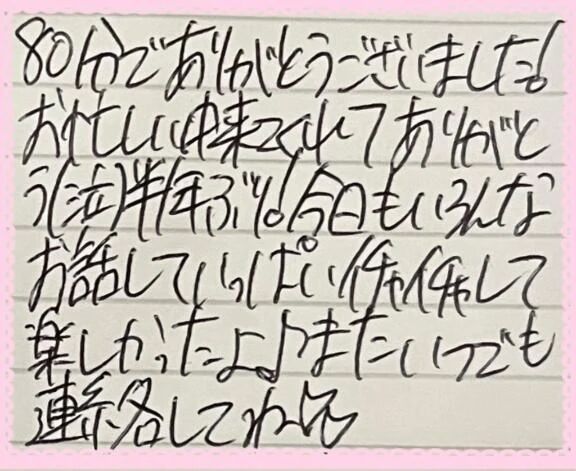 80分でありがとうございました!
お忙しい中来てくれてありがと
う(泣)半年ぶり!今日もいろんな
お話していっぱいイチャイチャして
楽しかったよ♪またいつでも
連絡してね